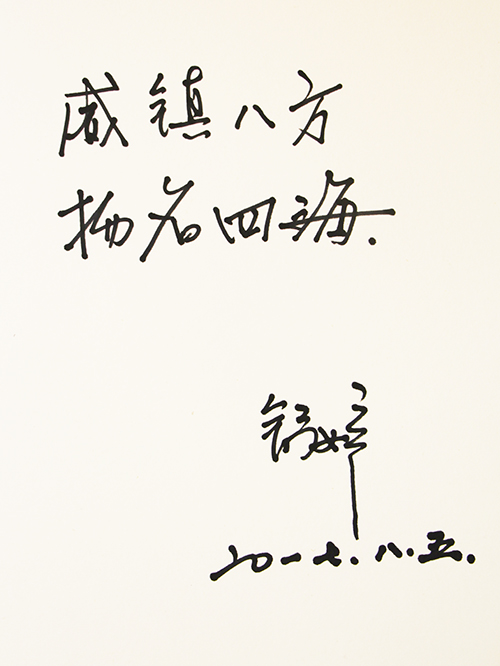 威镇八方
扬名四海.
二〇一七.八.五.